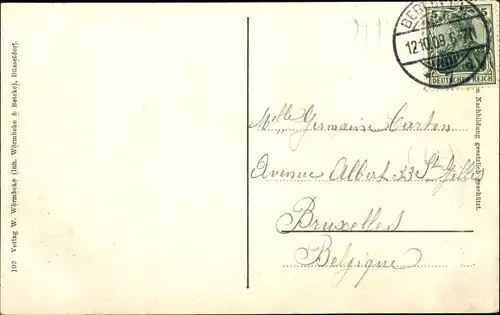 103 Verlag W. Würmbeke (Inh. Würmbeke & Beicke), Düsseldorf.
BERLIN
12.10.09.6-7N
5
DEUTSCHES REICH
Nachbildung gesetzlich geschützt.
Melle Germaine Carton
Avenue Albert 33 St Gilles
Bruxelles
Belgique